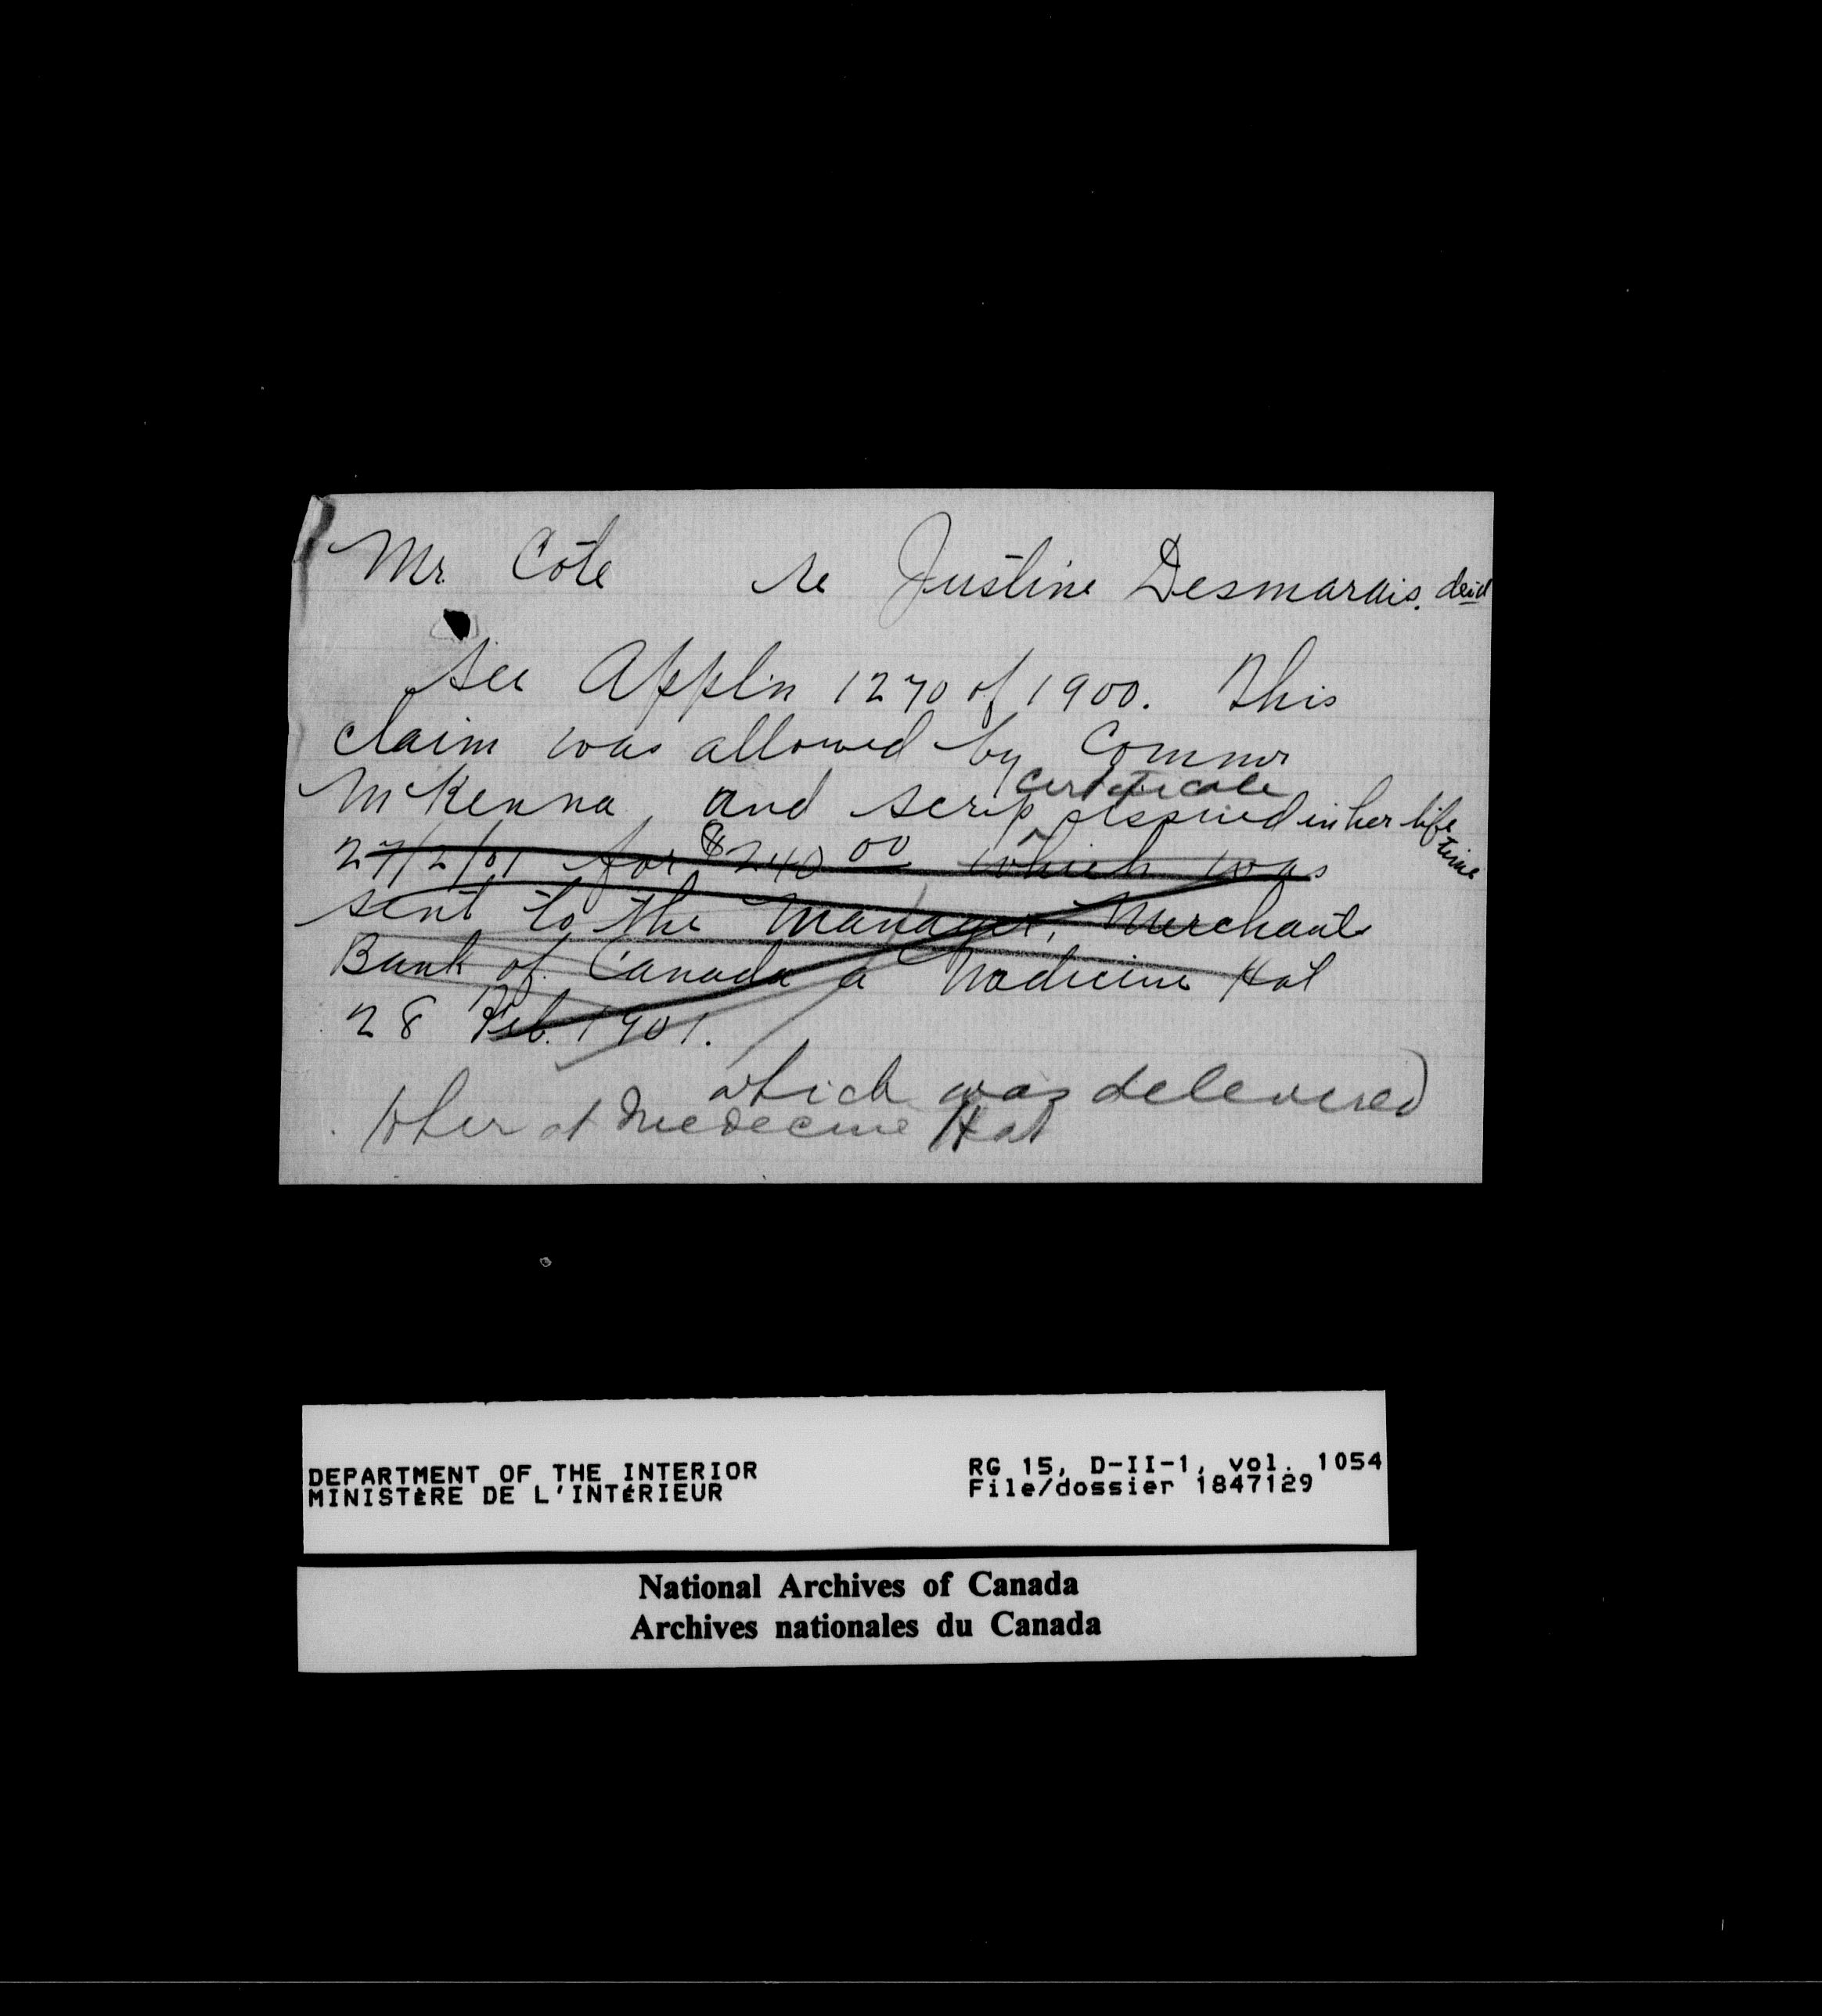 Mr. Côté re Justine Desmarais. decd
See Appl'n 1270 of 1900. This
claim was allowed by Commr
McKenna, and scrip certificate issued in her life time
27/2/01 for $240 00 which was
sent to the Manager, Merchants
Bank of Canada a Medicine Hat
28 Feb. 1901.
which was delivered
to her at Medecine Hat
DEPARTMENT OF THE INTERIOR RG 15, D-II-1, vol. 1054
MINISTÈRE DE L'INTÉRIEUR File/dossier 1847129
National Archives of Canada
Archives nationales du Canada